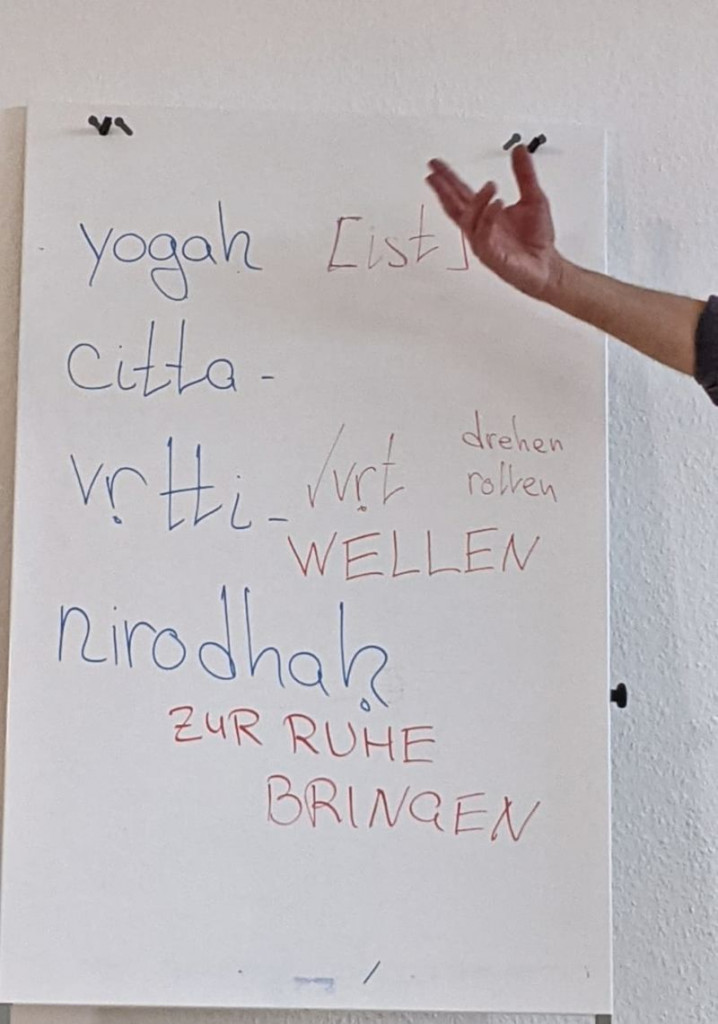 yogah [ist]
citta-
vṛtti- √vṛt drehen
rollen
WELLEN
nirodhaḥ
ZUR RUHE
BRINGEN